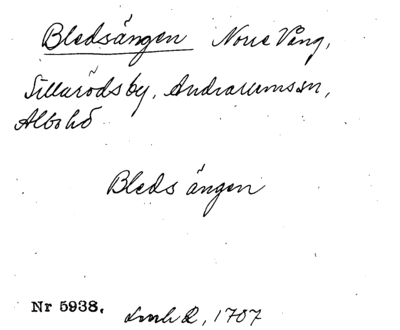 Bledsängen Norre Vång,
Sillarödsby, Andrarumssn,
Albohd
Bleds ängen
Nr 5938. 1707